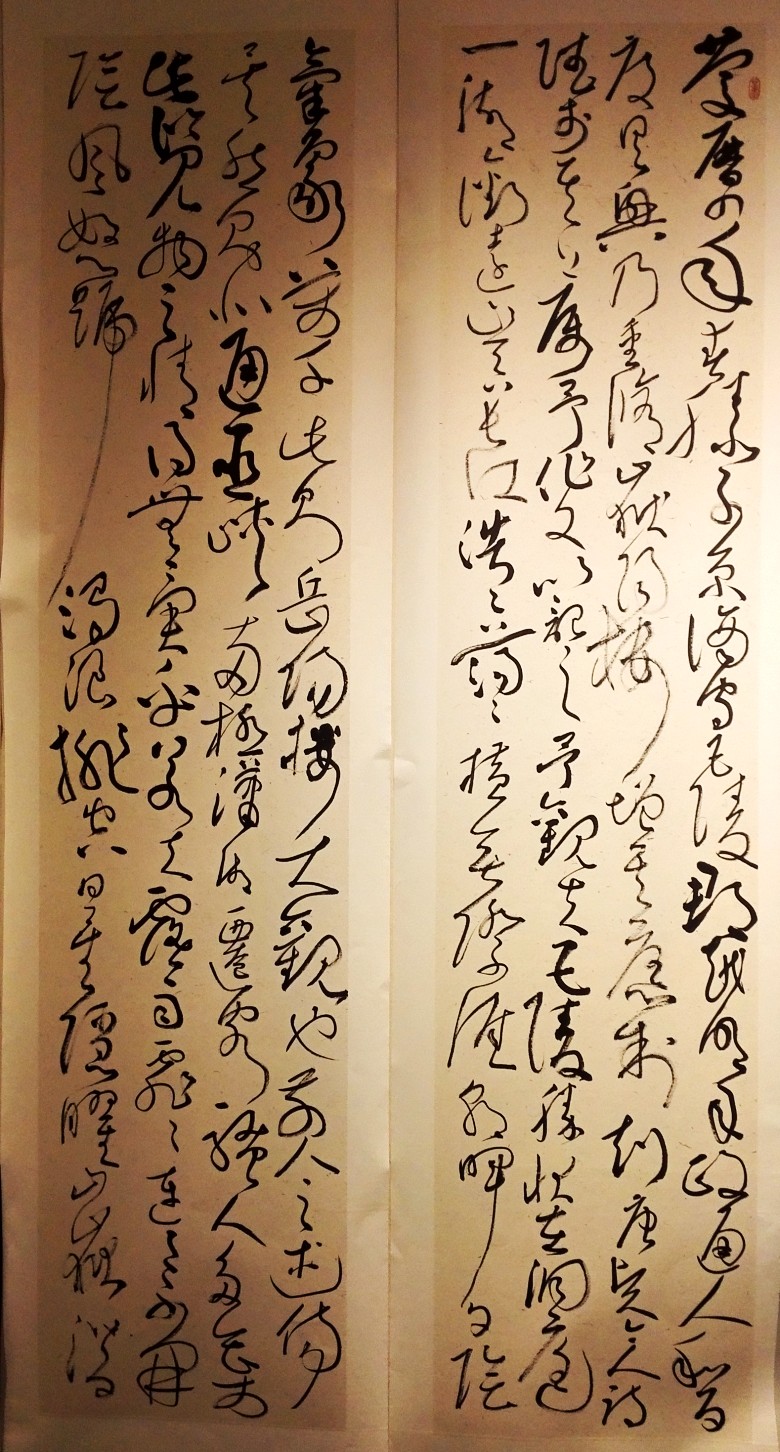 慶曆四年春滕子京謫守巴陵郡越明年政通人和百
廢具興乃重脩嶽陽樓增其舊制刻唐賢今人詩
賦於其上屬予作文以記之予觀夫巴陵勝狀在洞庭
一湖銜遠山吞長江浩浩蕩蕩橫無際涯朝暉夕陰
氣象萬千此則岳陽樓大觀也前人之述備
矣然則北通巫峽南極瀟湘遷客騷人多會於
此覽物之情得無異乎若夫霪雨霏霏連月不開
陰風怒號濁浪排空日星隱曜山嶽潛